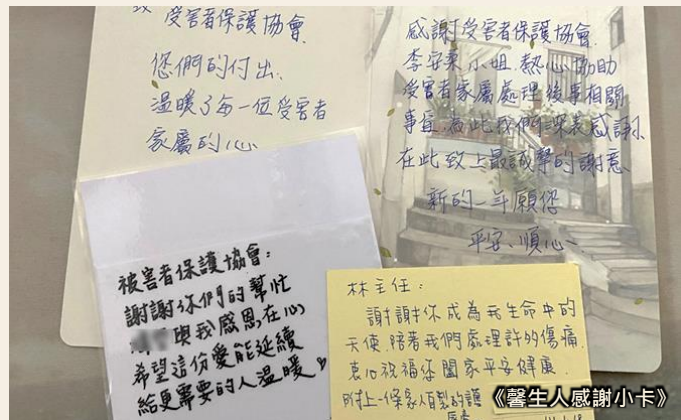 致 受害者保護協會
您們的付出、
溫暖了每一位受害者
家屬的心
感謝受害者保護協會
李安柔小姐.熱心協助
受害者家屬處理後事相關
事宜.為此我們深表感謝.
在此致上最誠摯的謝意
新的一年願您
平安、順心~
被害者保護協會:
謝謝你們的幫忙
我感恩,在心
希望這份愛能延續
給更需要的人溫暖
林主任:
謝謝你成為我生命中的
天使.陪著我們處理許的傷痛.
衷心祝福您闔家平安健康
附上一條家人自製的護
唇膏
《馨生人感謝小卡》